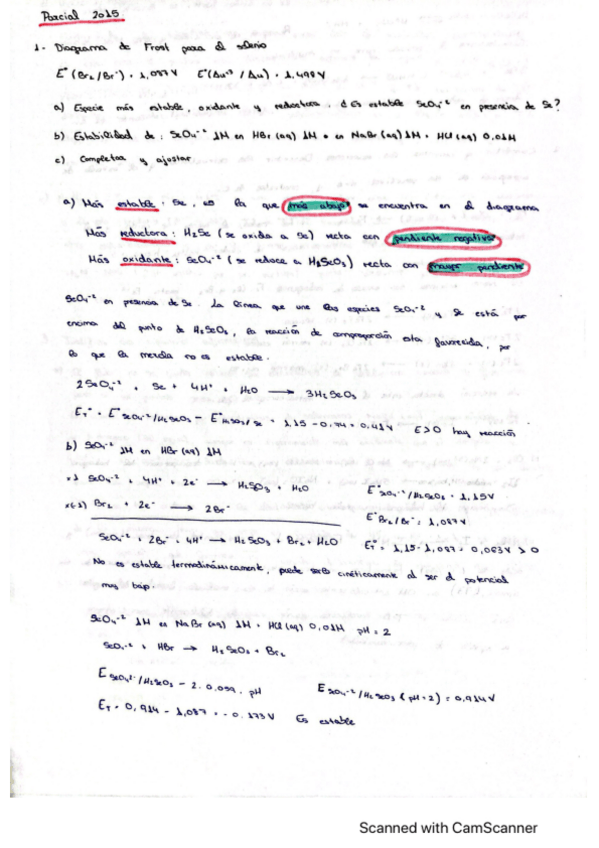 Parcial 2015
1- Diagrama de Frost para el selenio
E° (Br2/Br-) = 1,087 V   E°(Au+3/Au) = 1,498 V
a) Especie más estable, oxidante y reductora. ¿Es estable SeO4-2 en presencia de Se?
b) Estabilidad de: SeO4-2 1M en HBr (aq) 1M • en NaBr (aq) 1M + HCl (aq) 0,01M
c) Completar y ajustar
a) Más estable: Se, es la que más abajo se encuentra en el diagrama
Más reductora: H2Se (se oxida a Se) recta con pendiente negativa
Más oxidante: SeO4-2 (se reduce a H2SeO3) recta con mayor pendiente
SeO4-2 en presencia de Se. La línea que une las especies SeO4-2 y Se está por
encima del punto de H2SeO3, la reacción de comproporción esta favorecida, por
lo que la mezcla no es estable.
2SeO4-2 + Se + 4H+ + H2O → 3H2SeO3
ET° = E°SeO4-2/H2SeO3 - E°H2SeO3/Se = 1,15 - 0,74 = 0,41 V   E>0 hay reacción
b) SeO4-2 1M en HBr (aq) 1M
x1 SeO4-2 + 4H+ + 2e- → H2SO3 + H2O   E°SeO4-2/H2SeO3 = 1,15 V
x(-1) Br2 + 2e- → 2Br-   E°Br2/Br- = 1,087 V
SeO4-2 + 2Br- + 4H+ → H2SeO3 + Br2 + H2O   ET = 1,15 - 1,087 = 0,063 V > 0
No es estable termodinámicamente, puede serlo cinéticamente al ser el potencial
muy bajo.
SeO4-2 1M en NaBr (aq) 1M + HCl (aq) 0,01M pH = 2
SeO4-2 + HBr → H2SeO3 + Br2
E SeO4 2-/H2SeO3 - 2 · 0,059 · pH   E SeO4-2/H2SeO3 (pH = 2) = 0,914 V
ET = 0,914 - 1,087 = - 0,173 V   Es estable
Scanned with CamScanner